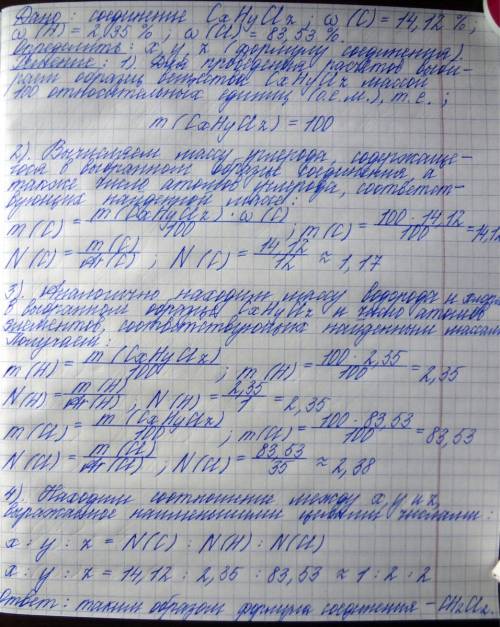 Дано: соединение CxHyClz; ω(C) = 14,12 %;
ω(H) = 2,35 %; ω(Cl) = 83,53 %.
Определить: x, y, z (формулу соединения).
Решение: 1). Для проведения расчетов выби-
раем образец вещества CxHyClz массой
100 относительных единиц (о.е.м.), т.е.;
m(CxHyClz) = 100
2). Вычисляем массу углерода, содержаще-
гося в выбранном образце соединения, а
также число атомов углерода, соответст-
вующих найденной массе:
m(C) = m(CxHyClz) · ω(C) / 100 ; m(C) = 100 · 14,12 / 100 = 14,12
N(C) = m(C) / Ar(C) ; N(C) = 14,12 / 12 ≈ 1,17
3). Аналогично находим массу водорода и хлора
в выбранном образце CxHyClz и число атомов
элементов, соответствующих найденным массам.
Получаем:
m(H) = m(CxHyClz) / 100 ; m(H) = 100 · 2,35 / 100 = 2,35
N(H) = m(H) / Ar(H) ; N(H) = 2,35 / 1 = 2,35
m(Cl) = m(CxHyClz) / 100 ; m(Cl) = 100 · 83,53 / 100 = 83,53
N(Cl) = m(Cl) / Ar(Cl) ; N(Cl) = 83,53 / 35 ≈ 2,38
4). Находим соотношение между x, y и z,
выраженное наименьшими целыми числами:
x : y : z = N(C) : N(H) : N(Cl)
x : y : z = 14,12 : 2,35 : 83,53 ≈ 1 : 2 : 2
Ответ: таким образом формула соединения - CH2Cl2.